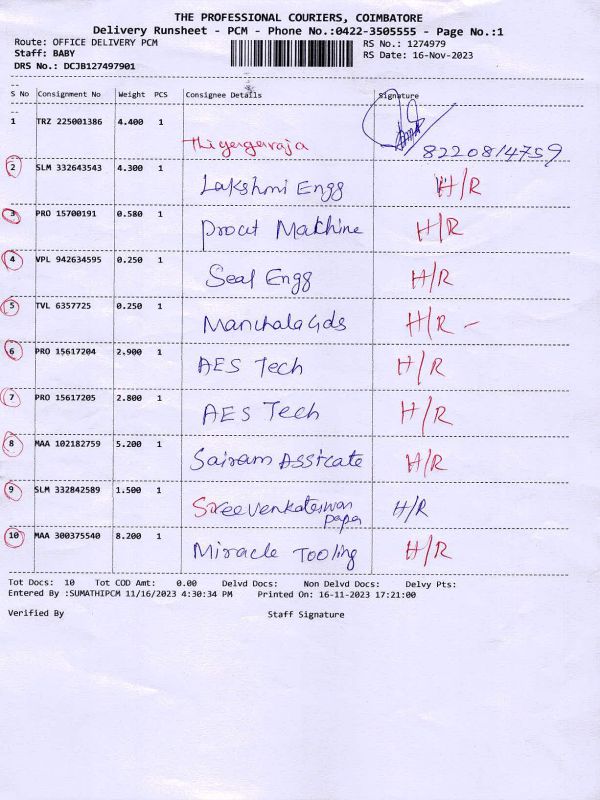 THE PROFESSIONAL COURIERS, COIMBATORE
Delivery Runsheet - PCM - Phone No.:0422-3505555 - Page No.:1
Route: OFFICE DELIVERY PCM RS No.: 1274979
Staff: BABY RS Date: 16-Nov-2023
DRS No.: DCJB127497901
S No Consignment No Weight PCS Consignee Details Signature
1 TRZ 225001386 4.400 1 Thigagaraja 8220814759
2 SLM 332643543 4.300 1 Lakshmi Engg H/R
3 PRO 15700191 0.580 1 Procut Makhine H/R
4 VPL 942634595 0.250 1 Seal Engg H/R
5 TVL 6357725 0.250 1 H/R
6 PRO 15617204 2.900 1 AES Tech H/R
7 PRO 15617205 2.800 1 AES Tech H/R
8 MAA 102182759 5.200 1 Sairam Assicate H/R
9 SLM 332842589 1.500 1 Sree venkateswara H/R
paper
10 MAA 300375540 8.200 1 Miracle Tooling H/R
Tot Docs: 10 Tot COD Amt: 0.00 Delvd Docs: Non Delvd Docs: Delvy Pts:
Entered By :SUMATHIPCM 11/16/2023 4:30:34 PM Printed On: 16-11-2023 17:21:00
Verified By Staff Signature